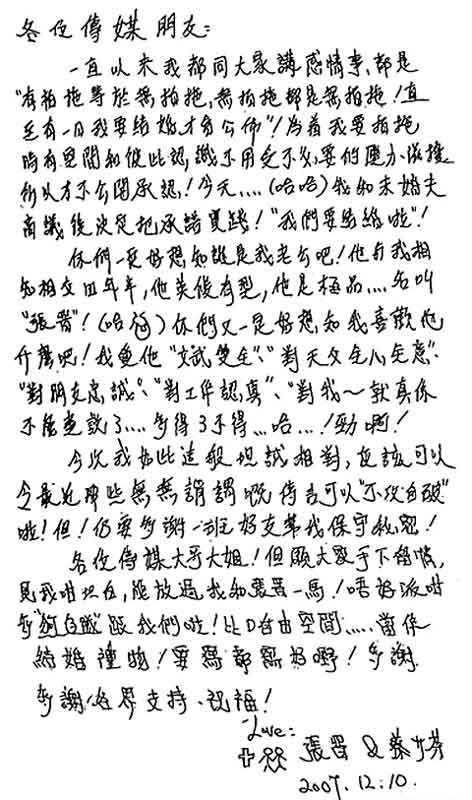 各位傳媒朋友:
一直以來我都同大家講感情事,都是
"有拍拖等於無拍拖,無拍拖都是無拍拖!直
至有一日我要結婚才會公佈"!為着我要拍拖
時有空間和彼此認識不用受不必要的壓力滋擾
所以才不公開承認!今天....(哈哈)我和未婚夫
商議後決定把承諾實踐!"我們要結婚啦"!
你們一定好想知誰是我老公吧!他與我相
知相交四年半,他英俊有型,他是極品....名叫
"張晉"!(哈哈)你們又一定好想知我喜歡他
什麼吧!我覺他"文武雙全"、"對天父全心全意"、
"對朋友忠誠"、"對工作認真"、"對我~就真係
不能盡說了....多得3不得...哈...!勁啊!
今次我如此這般坦誠相對,應該可以
令最近那些無無謂謂嘅傳言可以"不攻自破"
啦!但!仍要多謝一班好友幫我保守秘密!
各位傳媒大哥大姐!但願大家手下留情,
見我咁坦白,能放過我和張晉一馬!唔好派咁
多"狗仔隊"跟我們啦!比D自由空間.....當係
結婚禮物!要寫都寫好嘢!多謝
多謝各界支持、祝福!
Love:
張晉 & 蔡少芬
2007.12.10.